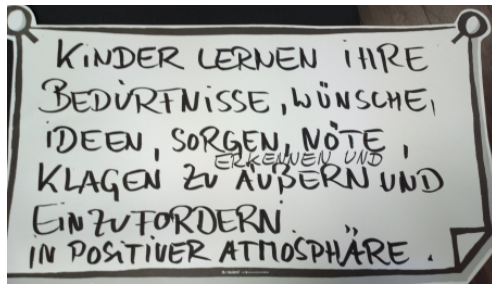 KINDER LERNEN IHRE
BEDÜRFNISSE, WÜNSCHE,
IDEEN, SORGEN, NÖTE,
ERKENNEN UND
KLAGEN ZU ÄUßERN UND
EINZUFORDERN
IN POSITIVER ATMOSPHÄRE.